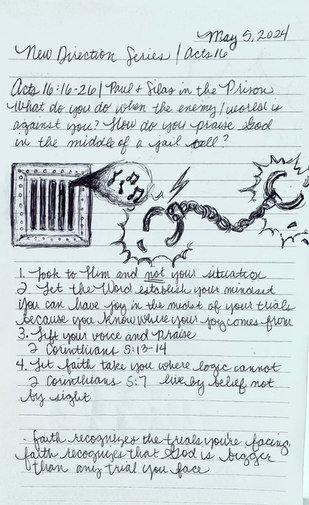 May 5, 2024
New Direction Series / Acts 16
Acts 16:16-26 / Paul + Silas in the Prison
What do you do when the enemy/world is
against you? How do you praise God
in the middle of a jail cell?
1. Look to Him and not your situation
2. Let the Word establish your mindset
you can have joy in the midst of your trials
because you know where your joy comes from
3. Lift your voice and Praise
2 Corinthians 5:13-14
4. Let faith take you where logic cannot
2 Corinthians 5:7 live by belief not
by sight
· faith recognizes the trials you're facing,
faith recognizes that God is bigger
than any trial you face